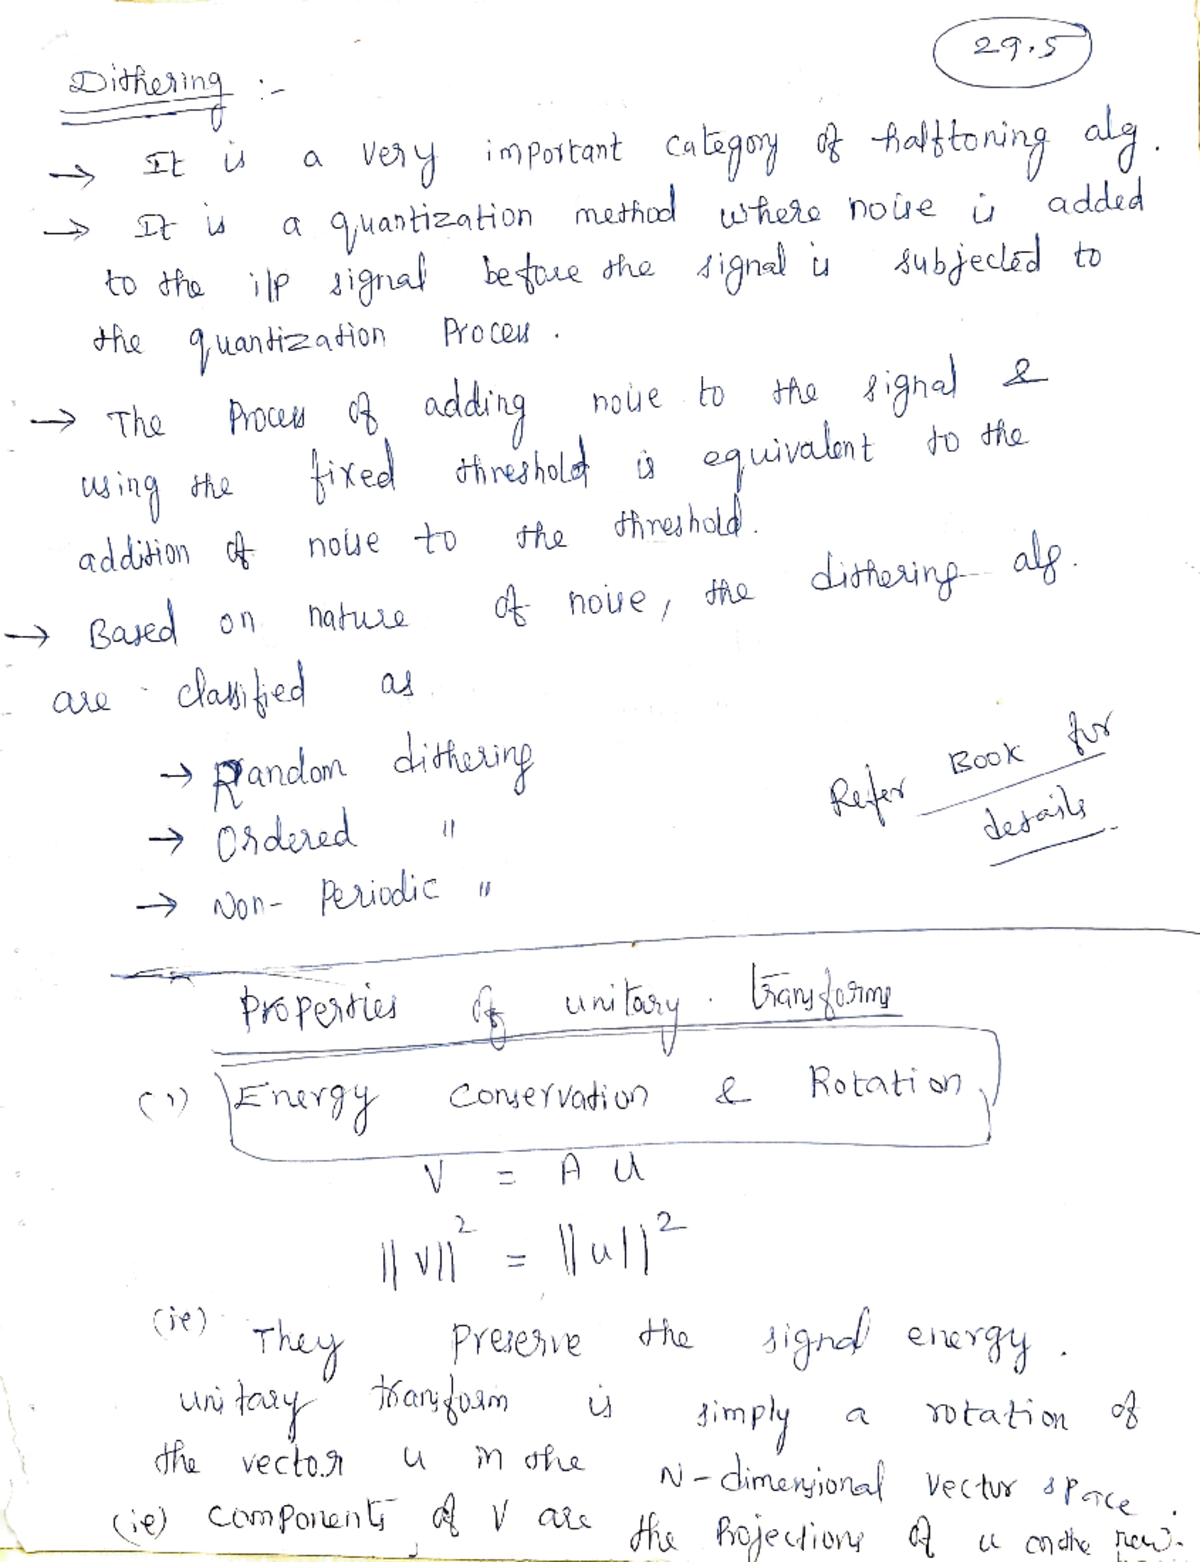 29.5
Dithering :-
→ It is a very important category of halftoning alg.
→ It is a quantization method where noise is added
to the i/p signal before the signal is subjected to
the quantization Process.
→ The Process of adding noise to the signal &
using the fixed threshold is equivalent to the
addition of noise to the threshold.
→ Based on nature of noise, the dithering alg.
are classified as
→ Random dithering
→ Ordered "
→ Non-Periodic "
Refer Book for
details
Properties of unitary transforms
(1) Energy Conservation & Rotation
V = A U
||V||² = ||u||²
(ie) They Preserve the signal energy.
unitary transform is simply a rotation of
the vector u in the N-dimensional vector space.
(ie) Components of V are the Projections of u on the new